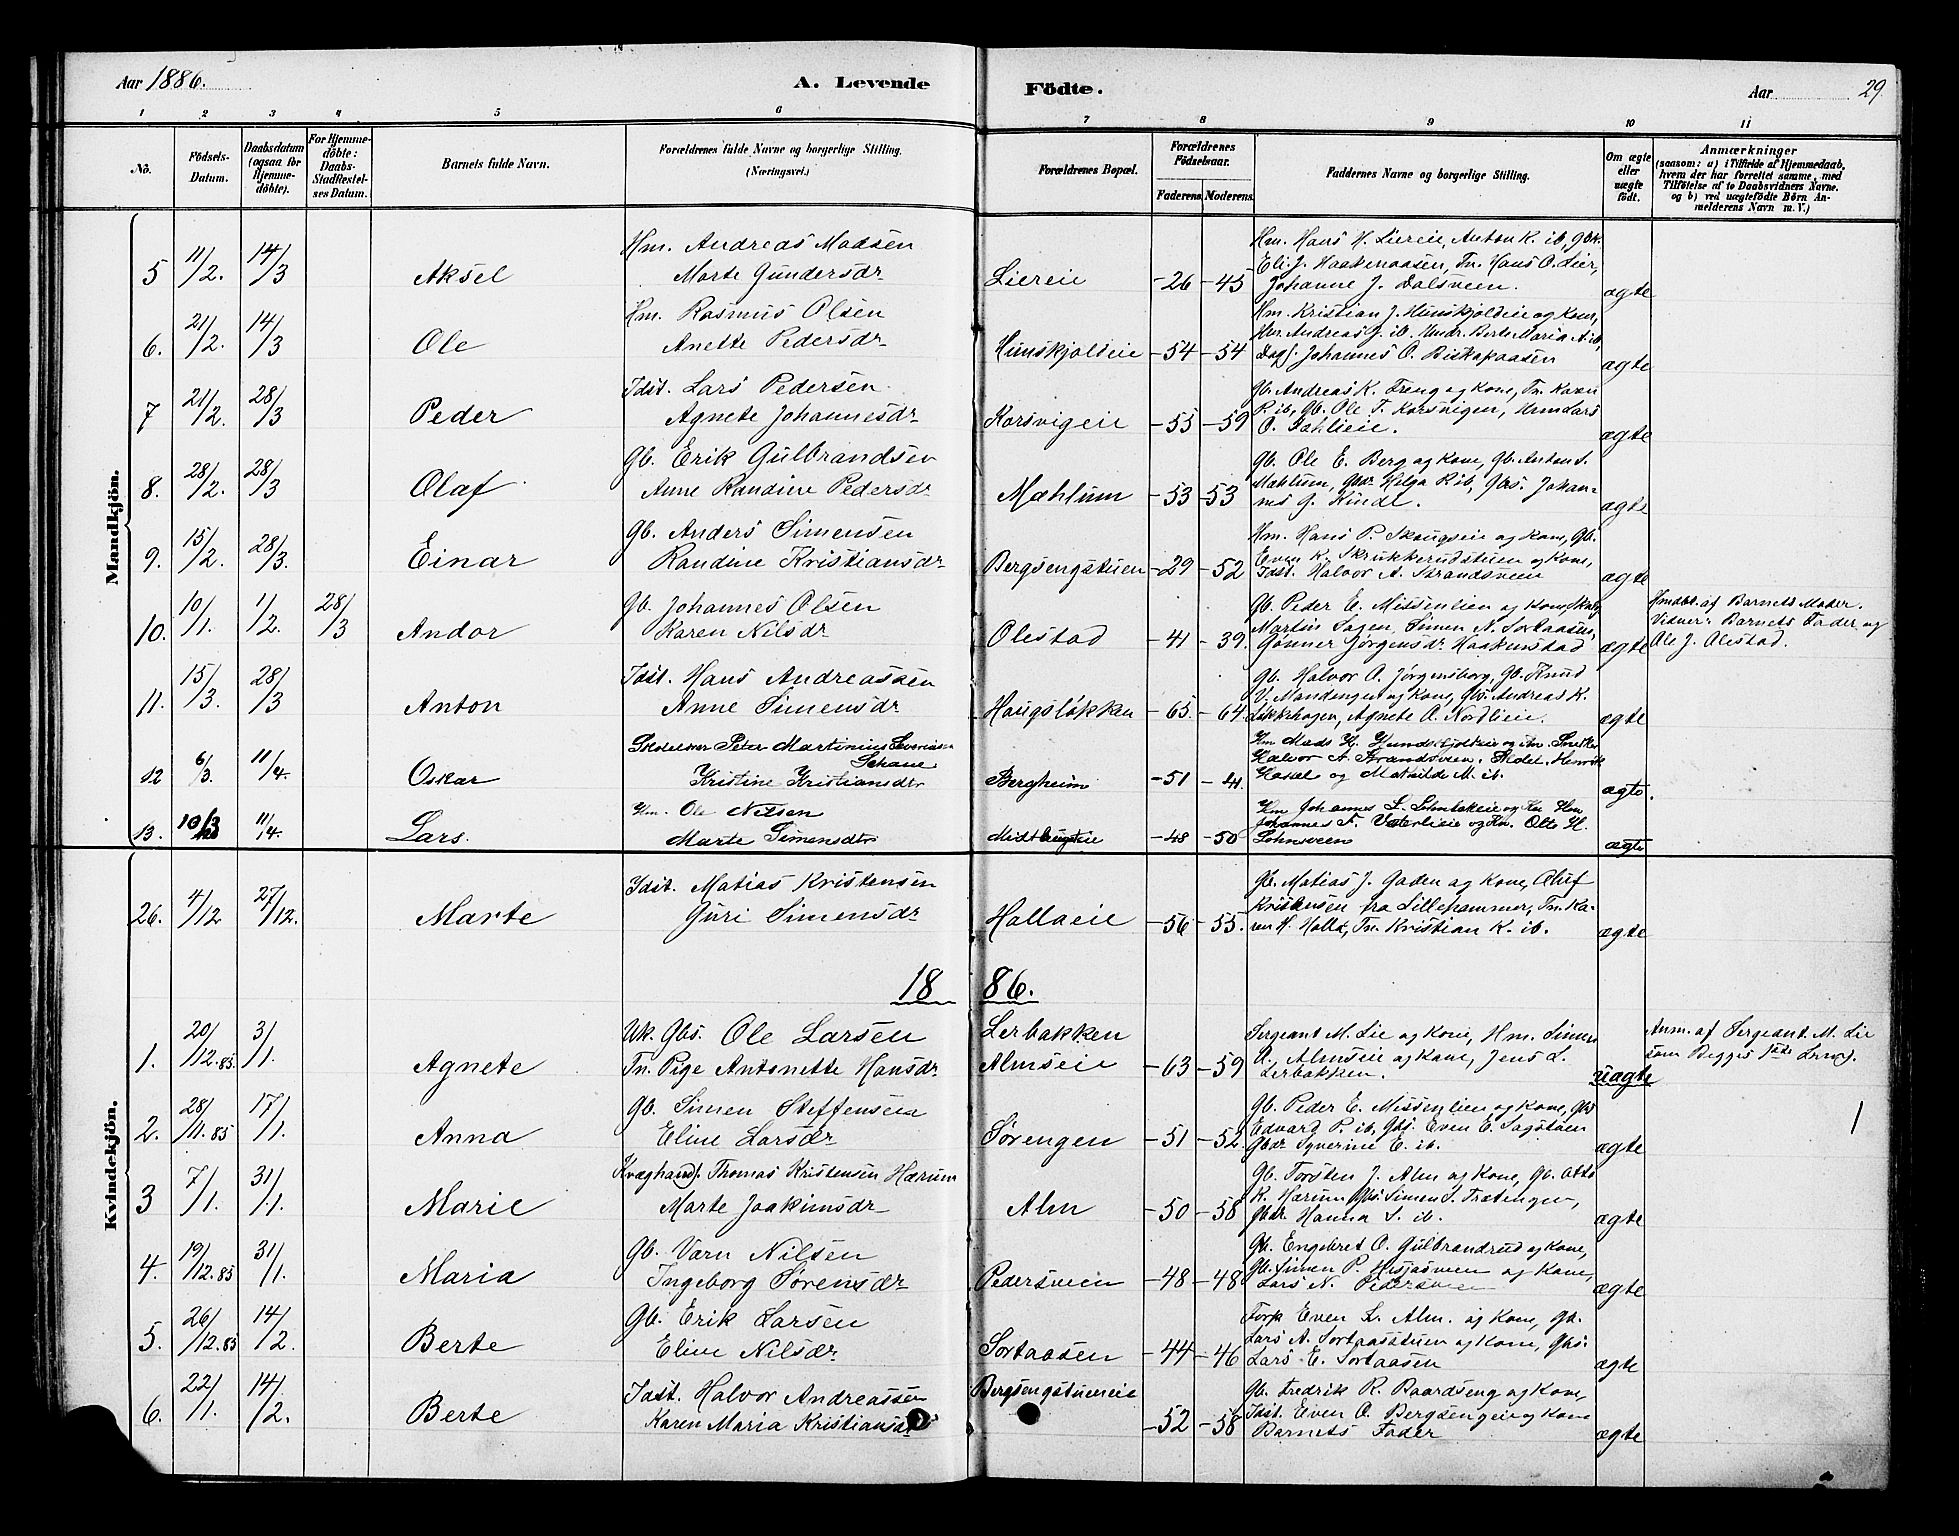 Aar 1886.
A. Levende
Födte.
Aar
29.
1 2 3 4 5 6 7 8 9 10 11
No.
Födsels-Datum.
Daabsdatum (ogsaa for Hjemmedöbte).
For Hjemmedöbte: Daabs-Stadfæstelses Datum.
Barnets fulde Navn.
Forældrenes fulde Navne og borgerlige Stilling. (Næringsvei.)
Forældrenes Bopæl.
Forældrenes Födselsaar.
Faderens. Moderens.
Faddernes Navne og borgerlige Stilling.
Om ægte eller uægte födt.
Anmærkninger
(saasom: a) i Tilfælde af Hjemmedaab, hvem der har forrettet samme, med Tilföielse af to Daabsvidners Navne. og b) ved uægtefödte Börn Anmelderens Navn m. V.)
Mandkjön.
Hm. Andreas Madsen
Hm. Hans H. Liereie, Anton K. ib, Gbk.
5 11/2. 14/3 Aksel Marte Gundersdr Liereie -26 -45
Eli J. Haakenaasen, Tn. Hans O. Lier,
Johanne J. Dalsveen. ægte
Hm. Rasmus Olsen
Hm. Kristian J. Hunskjoldeie og Kone,
6. 21/2. 14/3 Ole Anette Pedersdr Hunskjoldeie -54 -54
Hm. Andreas J. ib. Berte Maria A. ib,
Dagl. Johannes O. Biskopaasen ægte
Idst. Lars Pedersen.
Gb. Andreas K. Treng og Kone, Tn. Karen
7 21/2. 28/3 Peder Agnete Johannesdr Korsvigeie -55 -59
P. ib, Gb. Ole T. Korsvigen, Hm Lars
O. ægte
Gb. Erik Gulbrandsen
Gb. Ole E. Berg og Kone, Gb. Anton S.
8. 28/2. 28/3 Olaf Anne Randine Pedersdr Mæhlum -53 -53
Mæhlum, Gbdr Helga R ib, Gbs. Johan-
nes G. Kinde. ægte
Gb. Anders Simensen
Hm. Hans P. Skaugseie og Kone, Gb.
9. 15/2. 28/3. Einar Randine Kristiansdr Bergsengstuen -29 -52
Even K. Skrukkerudstuen og Kone,
Idst. Halvor A. Strandsveen ægte
Gb. Johannes Olsen
Gb. Peder E. Missenlien og Kone,
Hmdbt. af Barnets Moder.
10. 10/1. 1/2. 28/3 Andor Karen Nilsdr Olestad -41 -39.
Martin Sagen, Simen N. Sortaasen,
Vidner: Barnets Fader og
Gønner Jørgensdr Haakenstad ægte
Ole J. Olestad.
Idst. Hans Andreassen
Gb. Halvor O. Jørgensborg, Gb. Knud
11. 15/3. 28/3 Anton Anne Simensdr Haugsløkken -65 -64.
V. Mandengen og Kone, Gbs. Andreas K.
Løkkhagen, Agnete O. Nordlieie. ægte
Skolelær Peter Martinius Severinsen
Schane
Hm Mads H. Hundskjoldeie og Kn. Snekker
12 6/3. 11/4. Oskar Kristine Kristiansdtr Bergheim -51 -41
Halvor A. Strandsveen. Pidel. Henrik
Hasel og Mathilde M. ib. ægte.
Hm. Ole Nilsen
Hm Johannes L. og Kn Hm
13. 10/3 11/4. Lars. Marte Simensdtr Midtbugeie -48 -50
Johannes F. Vesterlieie og Kn. Olte H.
Lohnsveen ægte
Idst. Matias Kristensen
Gb. Matias J. Gaden og Kone, Oluf
26. 4/12 27/12. Marte Guri Simensdr Hollaeie -56 -55.
Kristensen fra Lillehammer, Tn. Ka-
ren H. Holla, Tn. Kristian K. ib. ægte
18 86.
Kvindekjön.
Uk. Gbs. Ole Larsen Lerbakken
Sergeant M. Lie og Kone, Hm. Simen
Anm. af Sergeant M. Lie
1. 20/12.85 3/1. Agnete Tn. Pige Antonette Hansdr Almseie -63 -59
A. Almseie og Kone, Jens L.
som Begges 1ste Leierm.
Lerbakken. uægte
Gb. Simen Steffensen
Gb. Peder E. Missenlien og Kone, Gbs
2. 28/11.85 17/1. Anna Eline Larsdr Sørengen -51 -52
Edvard P. ib, Gbs. Even E. Sagstuen
Gbdr Syverine E. ib. ægte
1
Kvæghandl. Thomas Kristensen Hærum
Gb. Torsten J. Alm og Kone, Gb. Otto
3 7/1. 31/1. Marie Marte Joakimsdr Alm -50 -58
K. Hærum, Gbs. Simen S. Trætengen,
Gbdr. Hanna S. ib. ægte
Gb. Varn Nilsen
Gb. Engebret O. Gulbrandrud og Kone,
4. 19/12.85 31/1. Maria Ingeborg Sørensdr Pedersveen -48 -48
Gb. Simen P. og Kone,
Lars N. Pedersveen ægte
Gb. Erik Larsen
Forp Even L. Alm. og Kone, Gb.
5. 26/12.85 14/2. Berte Eline Nilsdr Sortaasen -44 -46
Lars A. Sortaasstuen og Kone, Gbs.
Lars E. Sortaasen ægte
Idst. Halvor Andreassen Bergsengstueneie
Gb. Fredrik R. Baardseng og Kone,
6. 22/1. 14/2. Berte Karen Maria Kristiansdr -52 -58
Idst. Even O. Bergsengeie og Kone
Barnets Fader ægte